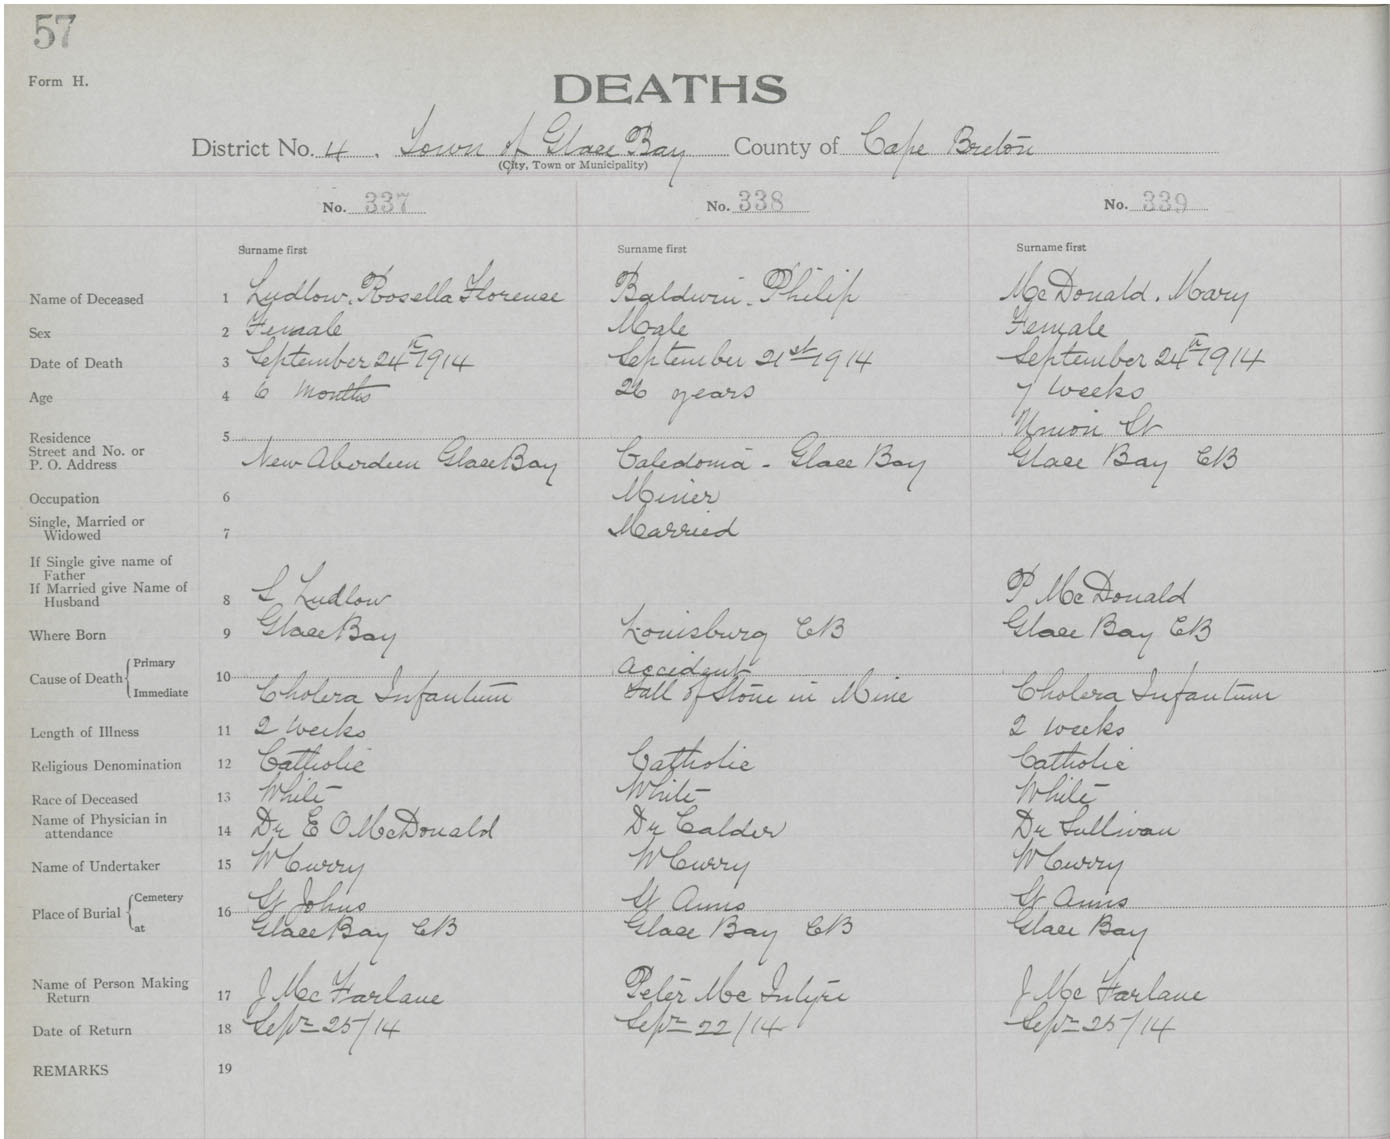 57
Form H.
DEATHS
District No. 4. Town of Glace Bay County of Cape Breton
(City, Town or Municipality)
No. 337 No. 338 No. 339
Surname first Surname first Surname first
Name of Deceased 1 Ludlow. Rosella Florence Baldwin. Philip McDonald. Mary
Sex 2 Female Male Female
Date of Death 3 September 24th 1914 September 21st 1914 September 24th 1914
Age 4 6 months 26 years 7 weeks
Residence 5 Union St
Street and No. or
P. O. Address New Aberdeen Glace Bay Caledonia - Glace Bay Glace Bay CB
Occupation 6 Miner
Single, Married or
Widowed 7 Married
If Single give name of
Father
If Married give Name of
Husband 8 S Ludlow P McDonald
Where Born 9 Glace Bay Louisburg CB Glace Bay CB
Cause of Death Primary 10 Accident
Immediate Cholera Infantum Fall of Stone in Mine Cholera Infantum
Length of Illness 11 2 Weeks 2 weeks
Religious Denomination 12 Catholic Catholic Catholic
Race of Deceased 13 White White White
Name of Physician in
attendance 14 Dr E O McDonald Dr Calder Dr Sullivan
Name of Undertaker 15 W Curry W Curry W Curry
Place of Burial Cemetery 16 St Johns St Anns St Anns
at Glace Bay CB Glace Bay CB Glace Bay
Name of Person Making
Return 17 J McFarlane Peter McIntyre J McFarlane
Date of Return 18 Sepr 25/14 Sepr 22/14 Sepr 25/14
REMARKS 19